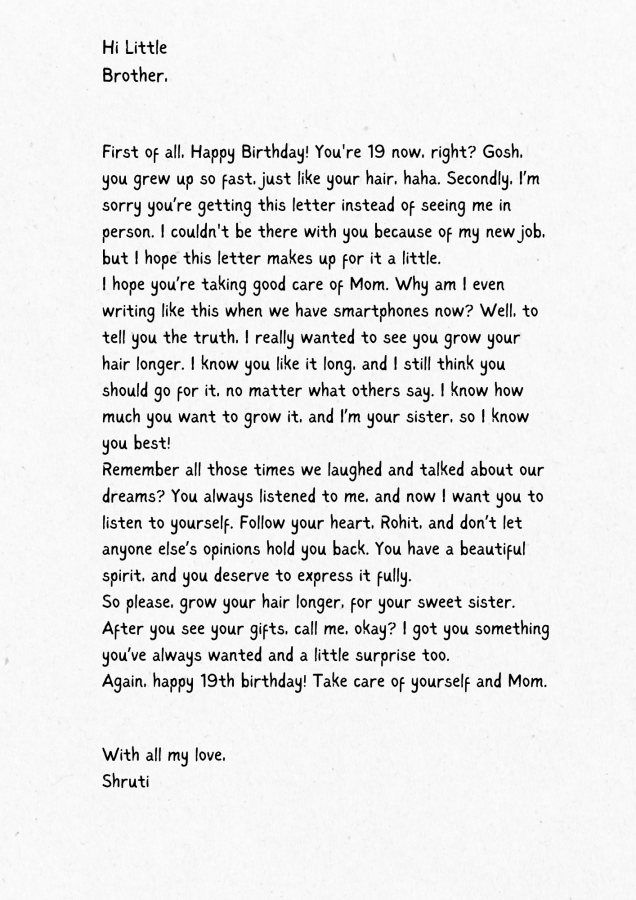 Hi Little
Brother,
First of all, Happy Birthday! You're 19 now, right? Gosh,
you grew up so fast, just like your hair, haha. Secondly, I'm
sorry you're getting this letter instead of seeing me in
person. I couldn't be there with you because of my new job,
but I hope this letter makes up for it a little.
I hope you're taking good care of Mom. Why am I even
writing like this when we have smartphones now? Well, to
tell you the truth, I really wanted to see you grow your
hair longer. I know you like it long, and I still think you
should go for it, no matter what others say. I know how
much you want to grow it, and I'm your sister, so I know
you best!
Remember all those times we laughed and talked about our
dreams? You always listened to me, and now I want you to
listen to yourself. Follow your heart, Rohit, and don't let
anyone else's opinions hold you back. You have a beautiful
spirit, and you deserve to express it fully.
So please, grow your hair longer, for your sweet sister.
After you see your gifts, call me, okay? I got you something
you've always wanted and a little surprise too.
Again, happy 19th birthday! Take care of yourself and Mom.
With all my love,
Shruti